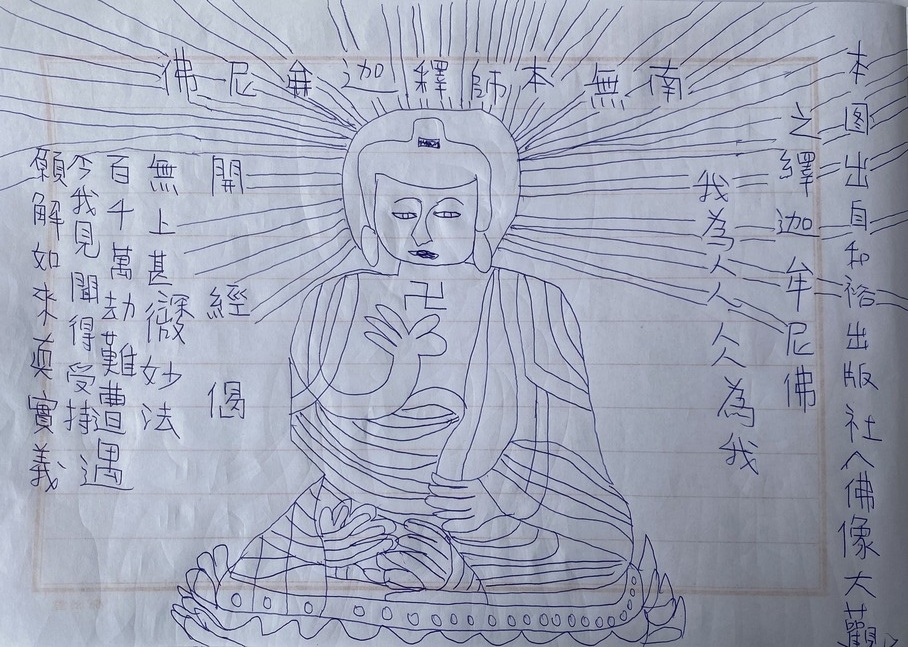 南無本師釋迦牟尼佛
本图出自和裕出版社︿佛像大觀﹀
之繹迦牟尼佛
我為人人人為我
卍
開經偈
無上甚深微妙法
百千萬劫難遭遇
今我見聞得受持
願解如來真實義